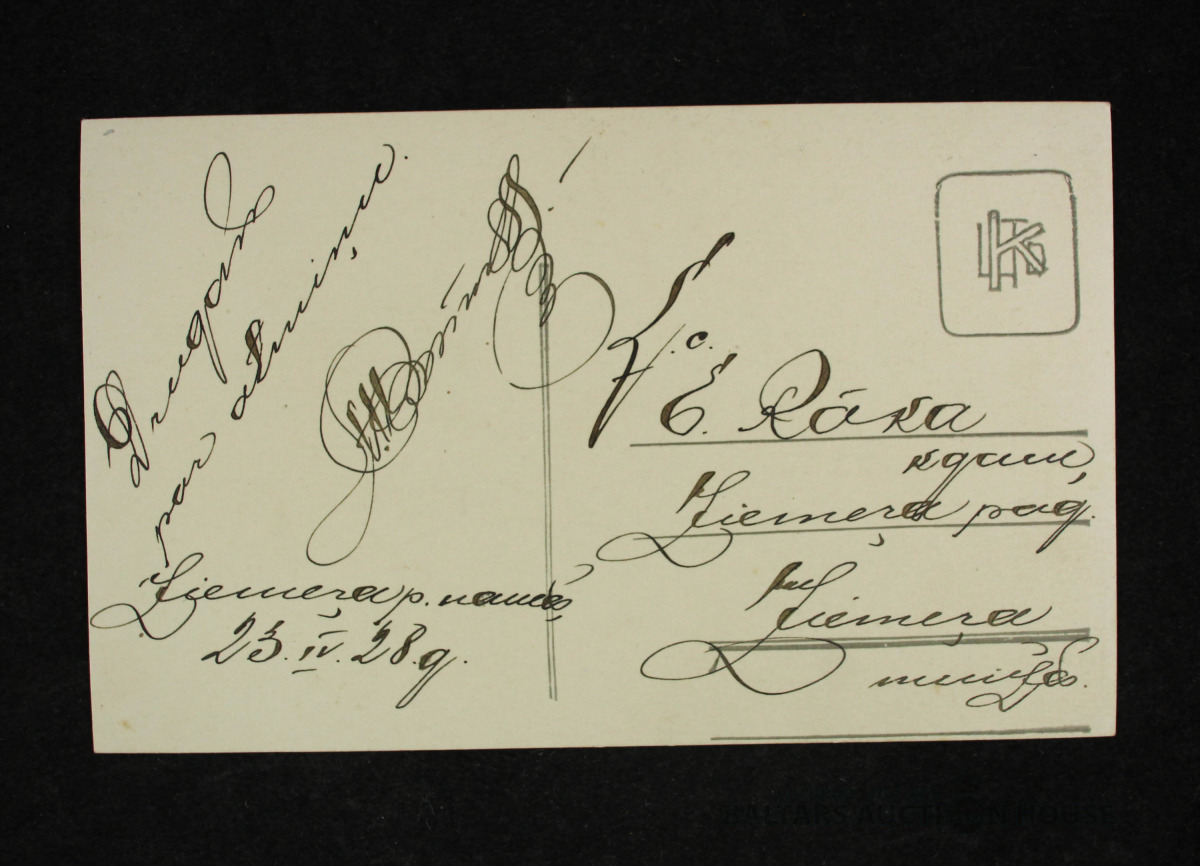 Draugam
par atmiņu.
Ziemeŗa p. namā
23.IV.28.g.
E. Rāka
kgam,
Ziemeŗa pag.
Ziemeŗa
muižā.
BALTARS AUCTION HOUSE